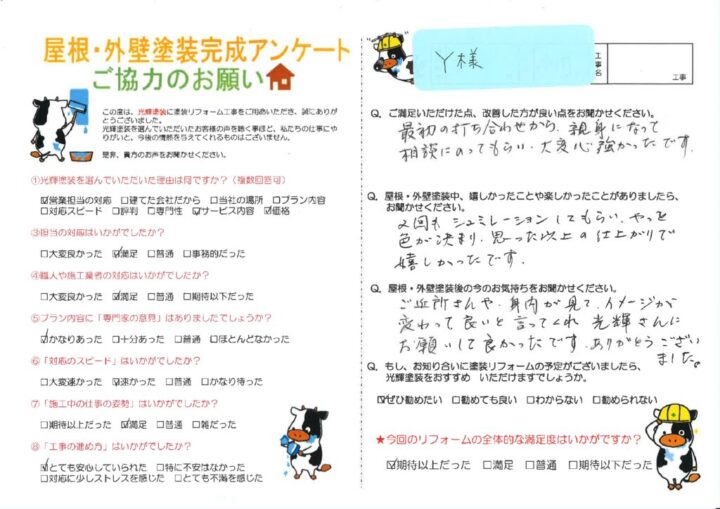 屋根・外壁塗装完成アンケート
ご協力のお願い
この度は、光輝塗装に塗装リフォーム工事をご用命いただき、誠にありが
とうございました。
光輝塗装を選んでいただいたお客様の声を聴く事ほど、私たちの仕事にや
りがいと、今後の情熱を与えてくれるものはございません。
是非、貴方のお声をお聞かせください。
①光輝塗装を選んでいただいた理由は何ですか?(複数回答可)
☑営業担当の対応 □建てた会社だから □当社の場所 □プラン内容
□対応スピード □評判 □専門性 ☑サービス内容 ☑価格
③担当の対応はいかがでしたか?
□大変良かった ☑満足 □普通 □事務的だった
④職人や施工業者の対応はいかがでしたか?
□大変良かった ☑満足 □普通 □期待以下だった
⑤プラン内容に「専門家の意見」はありましたでしょうか?
☑かなりあった □十分あった □普通 □ほとんどなかった
⑥「対応のスピード」はいかがでしたか?
□大変速かった ☑速かった □普通 □かなり待った
⑦「施工中の仕事の姿勢」はいかがでしたか?
□期待以上だった ☑満足 □普通 □雑だった
⑧「工事の進め方」はいかがでしたか?
☑とても安心していられた □特に不安はなかった
□対応に少しストレスを感じた □とても不満を感じた
Y様
工事名
工事
Q. ご満足いただけた点、改善した方が良い点をお聞かせください。
最初の打ち合わせから、親身になって
相談にのってもらい、大変心強かったです。
Q. 屋根・外壁塗装中、嬉しかったことや楽しかったことがありましたら、
お聞かせください。
2回も シュミレーションしてもらい、やっと
色が決まり、思った以上の仕上がりで
嬉しかったです。
Q. 屋根・外壁塗装後の今のお気持ちをお聞かせください。
ご近所さんや、身内が見て、イメージが
変わって良いと言ってくれ 光輝さんに
お願いして良かったです。ありがとうござい
ました。
Q. もし、お知り合いに塗装リフォームの予定がございましたら、
光輝塗装をおすすめ いただけますでしょうか。
☑ぜひ勧めたい □勧めても良い □わからない □勧められない
★今回のリフォームの全体的な満足度はいかがですか?
☑期待以上だった □満足 □普通 □期待以下だった